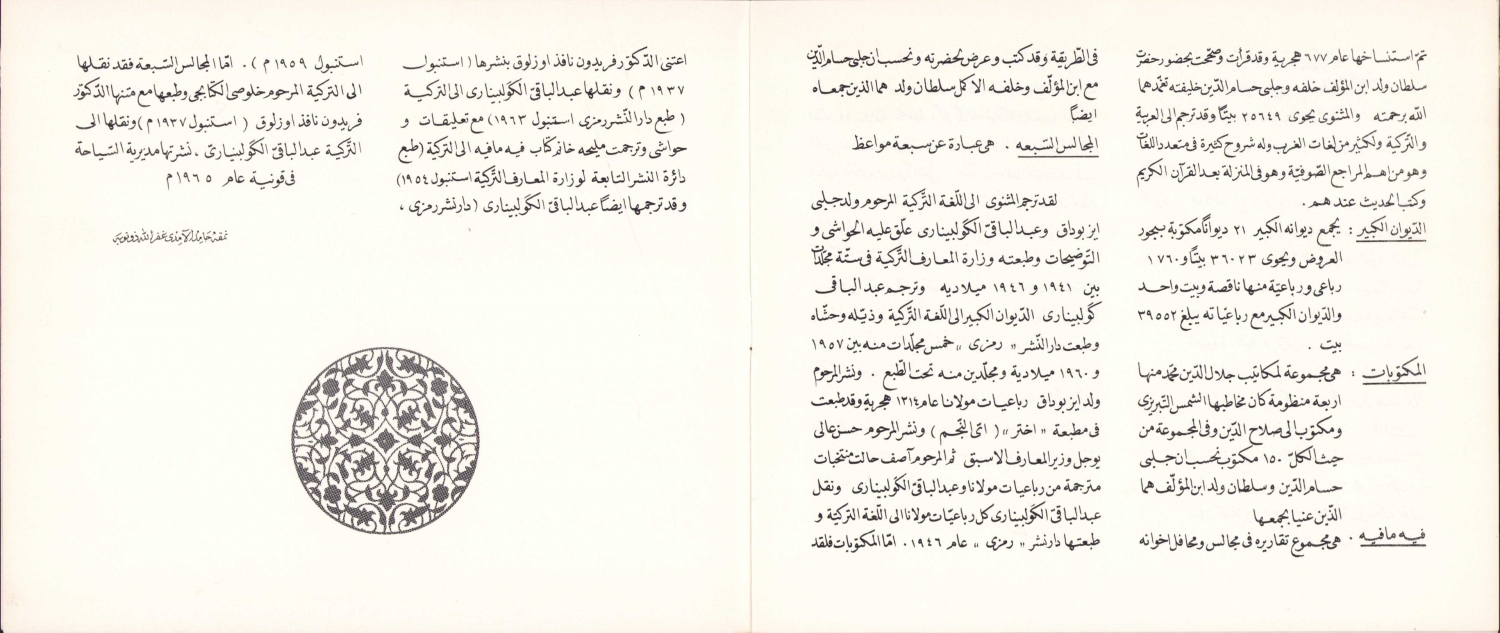 تمّ استنساخها عام ٦٧٧ هجرية وقد قرأت وصحّحت بحضور حضرة
سلطان ولد ابن المؤلف خلفه وجلبى حسام الدّين خليفته تغمّدهما
الله برحمته والمثنوى يحوى ٢٥٦٤٩ بيتًا وقد ترجم الى العربية
والتّركية ولكثير من لغات الغرب وله شروح كثيرة فى متعدد اللغات
وهو من اهم المراجع الصّوفيّة وهو فى المنزلة بعد القرآن الكريم
وكتب الحديث عندهم .
الدّيوان الكبير : يجمع ديوانه الكبير ٢١ ديوانًا مكتوبة ببحور
العروض ويحوى ٣٦٠٢٣ بيتًا و ١٧٦٠
رباعى ورباعيّة منها ناقصة وبيت واحد
والدّيوان الكبير مع رباعياته يبلغ ٣٩٥٥٢
بيت .
المكتوبات : هى مجموعة لمكاتيب جلال الدّين محمّد منها
اربعة منظومة كان مخاطبها الشمس التّبريزى
ومكتوب الى صلاح الدّين وفى المجموعة من
حيث الكلّ ١٥٠ مكتوب نحسبان جلبى
حسام الدّين وسلطان ولد ابن المؤلّف هما
الذّين عنيا بجمعها
فيه مافيه . هى مجموع تقاريره فى مجالس ومحافل اخوانه
فى الطّريقة وقد كتب وعرض بحضرته ونحسبان جلبى حسام الدّين
مع ابن المؤلّف وخلفه الاكمل سلطان ولد هما الذين جمعاه
ايضاً
المجالس السّبعه . هى عبارة عن سبعة مواعظ
لقد ترجم المثنوى الى اللّغة التّركية المرحوم ولد جلبى
ايز بوداق وعبد الباقىّ الكولبينارى علّق عليه الحواشى و
التّوضيحات وطبعته وزارة المعارف التّركية فى ستّة مجلّدات
بين ١٩٤١ و ١٩٤٦ ميلاديه وترجم عبد الباقى
كولبينارى الدّيوان الكبير الى اللّغة التّركية وذيّله وحشّاه
وطبعت دار النّشر « رمزى » خمس مجلّدات منه بين ١٩٥٧
و ١٩٦٠ ميلادية ومجلّدين منه تحت الطّبع . ونشر المرحوم
ولد ايز بوداق رباعيات مولانا عام ١٣١٤ هجرية وقد طبعت
فى مطبعة « اختر » ( اىّ النّجم ) ونشر المرحوم حسن عالى
يوجل وزير المعارف الاسبق ثم المرحوم آصف حالت منتخبات
مترجمة من رباعيات مولانا وعبد الباقىّ الكولبينارى ونقل
عبد الباقىّ الكولبينارى كل رباعيّات مولانا الى اللّغة التركية و
طبعتها دار نشر « رمزى » عام ١٩٤٦ . امّا المكتوبات فلقد
اعتنى الدّكتور فريدون نافذ اوزلوق بنشرها ( استنبول
١٩٣٧ م ) ونقلها عبد الباقىّ الكولبينارى الى التركية
( طبع دار النّشر رمزى استنبول ١٩٦٣ ) مع تعليقات و
حواشى وترجمت مليحه خانم كتاب فيه مافيه الى التركية ( طبع
دائرة النشر التابعة لوزارة المعارف التّركية استنبول ١٩٥٤ )
وقد ترجمها ايضاً عبد الباقىّ الكولبينارى ( دار نشر رمزى ،
استنبول ١٩٥٩ م ) . امّا المجالس السّبعة فقد نقلها
الى التركية المرحوم خلوصى الكتابجى وطبعها مع متنها الدّكتور
فريدون نافذ اوزلوق ( استنبول ١٩٣٧ م ) ونقلها الى
التّركية عبد الباقىّ الكولبينارى . نشرتها مديرية السّياحة
فى قونية عام ١٩٦٥ م
نمقه حامد الآمدى غفر الله ذنوبه